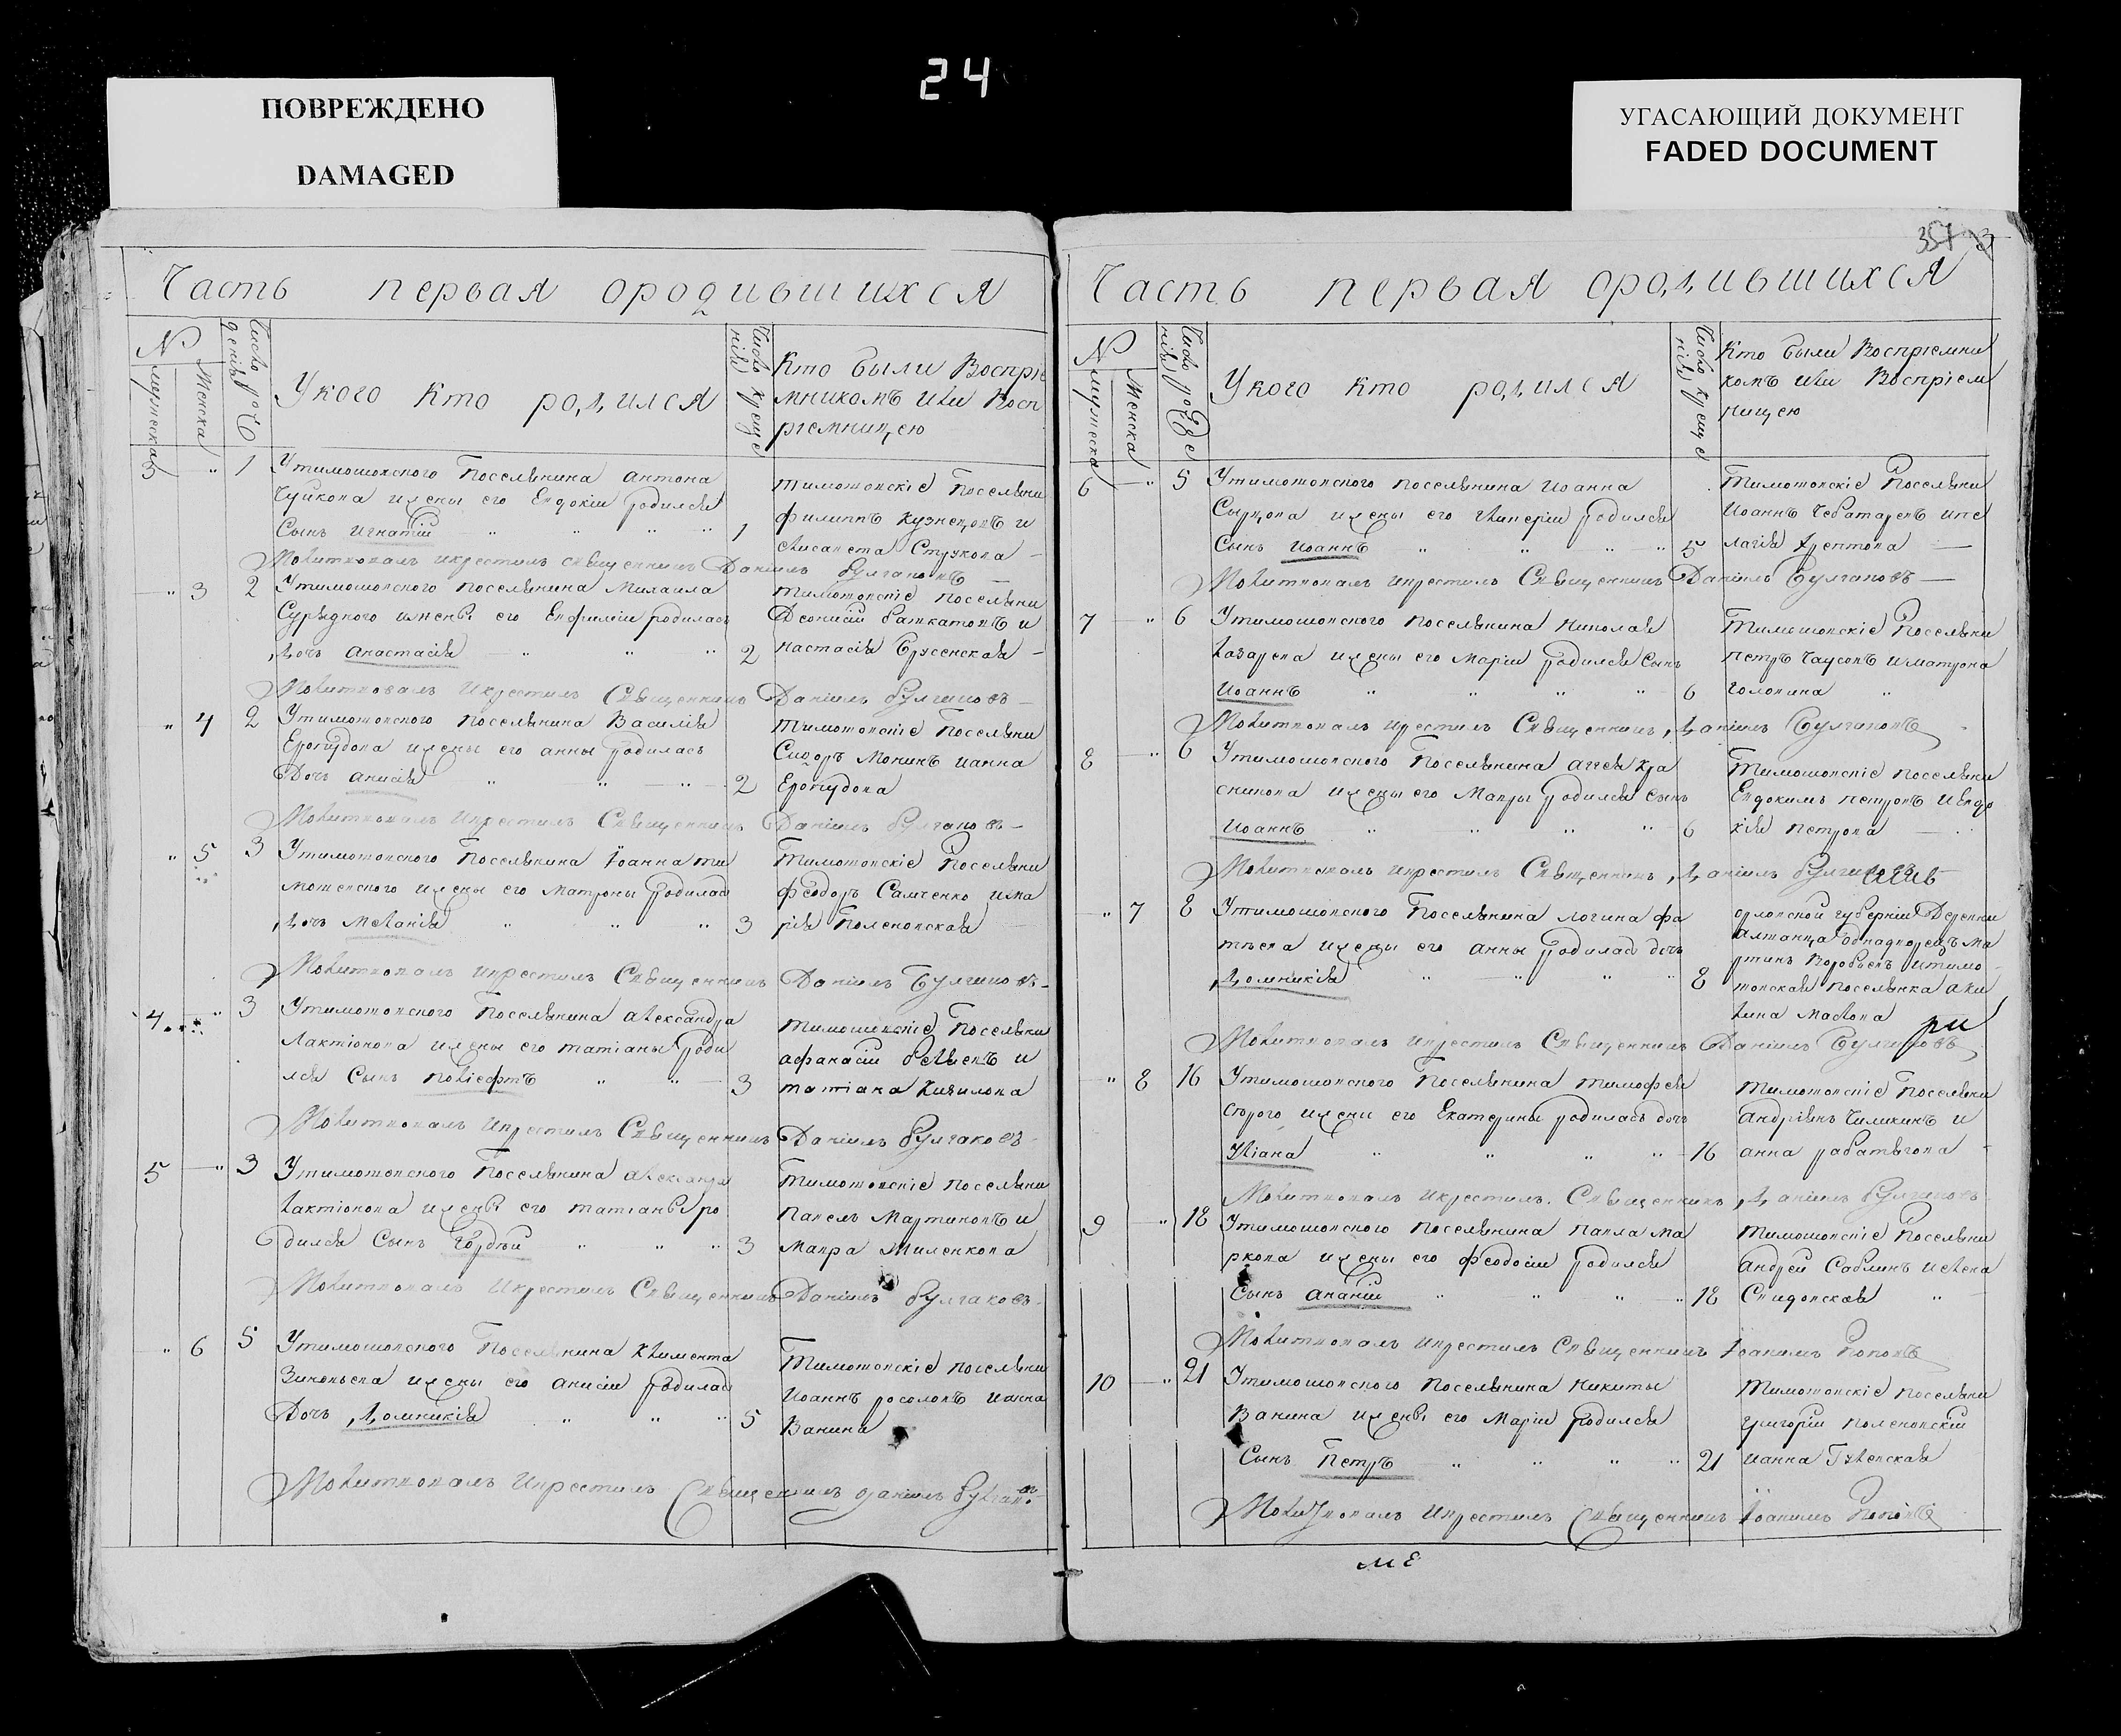 24
ПОВРЕЖДЕНО
DAMAGED
УГАСАЮЩИЙ ДОКУМЕНТ
FADED DOCUMENT
Часть первая ородившихся
№
мужеска
Женска
Число рожденія
Укого Кто родился
Число крещенія
Кто были Воспріе
мникомъ или Восп
ріемницею
3 " 1 Утимошовского Поселянина Антона
Чуйкова ижены его Евдокіи родился
Сынъ Игнатій " " " 1
тимошовскіе Поселяни
филиппъ Кузнецовъ и
елисавета Струкова
Молитвовалъ икрестилъ священникъ Даніилъ Булгаковъ
" 3 2 Утимошовского поселянина Михаила
ижены его Евфиміи родилась
дочь Анастасія " " " 2
тимошовскіе поселяни
Деонисій и
настасія Брусенская
Молитвовалъ Икрестилъ Священникъ Даніилъ Булгаковъ
" 4 2 Утимошовского поселянина Василія
ижены его анны родилась
Дочь анисія " " " 2
тимошовскіе Поселяни
Сидоръ Монинъ ианна
Молитвовалъ Икрестилъ Священникъ Даніилъ Булгаковъ
" 5 3 Утимошовского Поселянина Іоанна ти
мошевского ижены его Матроны родилась
дочь Меланія " " " 3
Тимошовскіе Поселяни
феодоръ Самченко има
рія Поленовская
Молитвовалъ икрестилъ Священникъ Даніилъ Булгаковъ
4 " 3 Утимошовского Поселянина александра
Лактіонова ижены его татіаны роди
лся Сынъ Поліефтъ " " 3
тимошовскіе Поселяни
афанасій бѣляевъ и
татіана Кизилова
Молитвовалъ Икрестилъ Священникъ Даніилъ Булгаковъ
5 " 3 Утимошовского Поселянина александра
лактіонова ижены его татіаны ро
дился Сынъ Гордѣй " " " 3
тимошовскіе поселяни
павелъ Мартиновъ и
Мавра Миленкова
Молитвовалъ Икрестилъ Священникъ Даніилъ Булгаковъ
" 6 5 Утимошовского Поселянина Климента
Зиновьева ижены его анисіи родилась
Дочь Домникія " " " 5
Тимошовскіе поселяни
Иоаннъ росоловъ ианна
Ванина
Молитвовалъ Икрестилъ Священникъ даніилъ булгаковъ
357 3
Часть первая ородившихся
№
мужеска
Женска
Число рожденія
Укого Кто родился
Число крещенія
Кто были Воспріемни
комъ или Воспріем
ницею
6 " 5 Утимошовского поселянина Иоанна
Сырцова ижены его Гликеріи родился
Сынъ Иоаннъ " " " " 5
Тимошовскіе Поселяни
Иоаннъ Чеботаревъ ипе
лагія
Молитвовалъ икрестилъ Священникъ Даніилъ Булгаковъ
7 " 6 Утимошовского поселянина Николая
Лазарева ижены его Маріи родился Сынъ
Иоаннъ " " " " 6
Тимошовскіе Поселяни
петръ Чаусовъ иматрона
головина "
Молитвовалъ икрестилъ Священникъ, Даніилъ Булгаковъ
8 " 6 Утимошовского Поселянина аггея Кра
сникова ижены его Мавры родился Сынъ
Иоаннъ " " " " 6
Тимошовскіе поселяни
Евдокимъ петровъ иевдо
кія петрова
Молитвовалъ икрестилъ Священникъ, Даніилъ Булгаковъ
" 7 8 Утимошовского Поселянина логина фа
тѣева ижены его анны родилась дочь
Домникія " " " " 8
орловской губерніи Деревни
однадворецъ ма
ртинъ Воробьевъ итимо
шовская поселянка аки
лина Маслова
ри
Молитвовалъ икрестилъ Священникъ Даніилъ Булгаковъ
" 8 16 Утимошовского Поселянина тимофея
ижены его Екатерины родилась дочь
Уліана " " " " 16
тимошовскіе Поселяни
Андріянъ Чиликинъ и
анна
Молитвовалъ икрестилъ. Священникъ, Даніилъ Булгаковъ
9 " 18 Утимошовского поселянина павла Ма
ркова ижены его феодосіи родился
Сынъ Ананій " " " " 18
тимошовскіе Поселяни
Андрей Саблинъ иелена
Молитвовалъ икрестилъ Священникъ Іоакимъ Поповъ
10 " 21 Утимошовского поселянина Никиты
Ванина ижены его Маріи родился
Сынъ Петръ " " " " 21
тимошовскіе поселяни
григорій поленовскій
ианна
Молитвовалъ икрестилъ Священникъ Іоакимъ Поповъ
ме